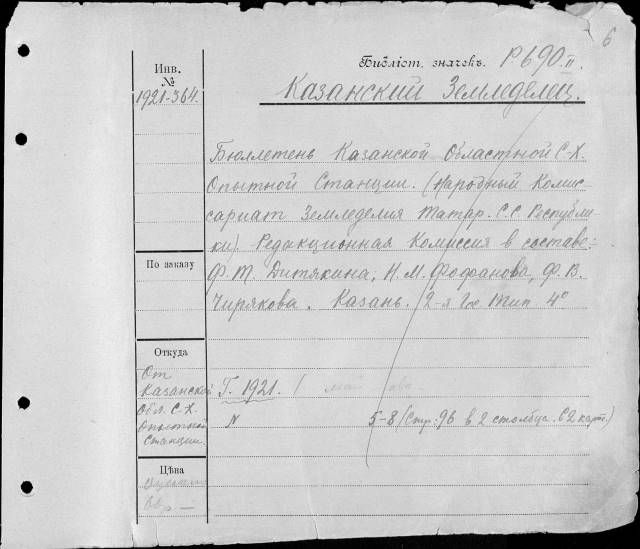 6
Библіот. значекъ. P690.II.
Инв.
№
1921-364.
Казанский Земледелец.
Бюллетень Казанской Областной С-Х.
Опытной Станции. (Народный Комис-
сариат Земледелия Татар. С.С. Республи-
ки). Редакционная Комиссия в составе:
Ф. Т. Дитякина, Н. М. Фофанова, Ф. В.
Чирякова. Казань. 2-я Гос Тип 4°
По заказу
Откуда
От
Казанской
Обл. С-Х.
Опытной
Станции.
Г. 1921. (
N 5-8 (Стр: 96 в 2 столбца. 62 карт.)
Цѣна